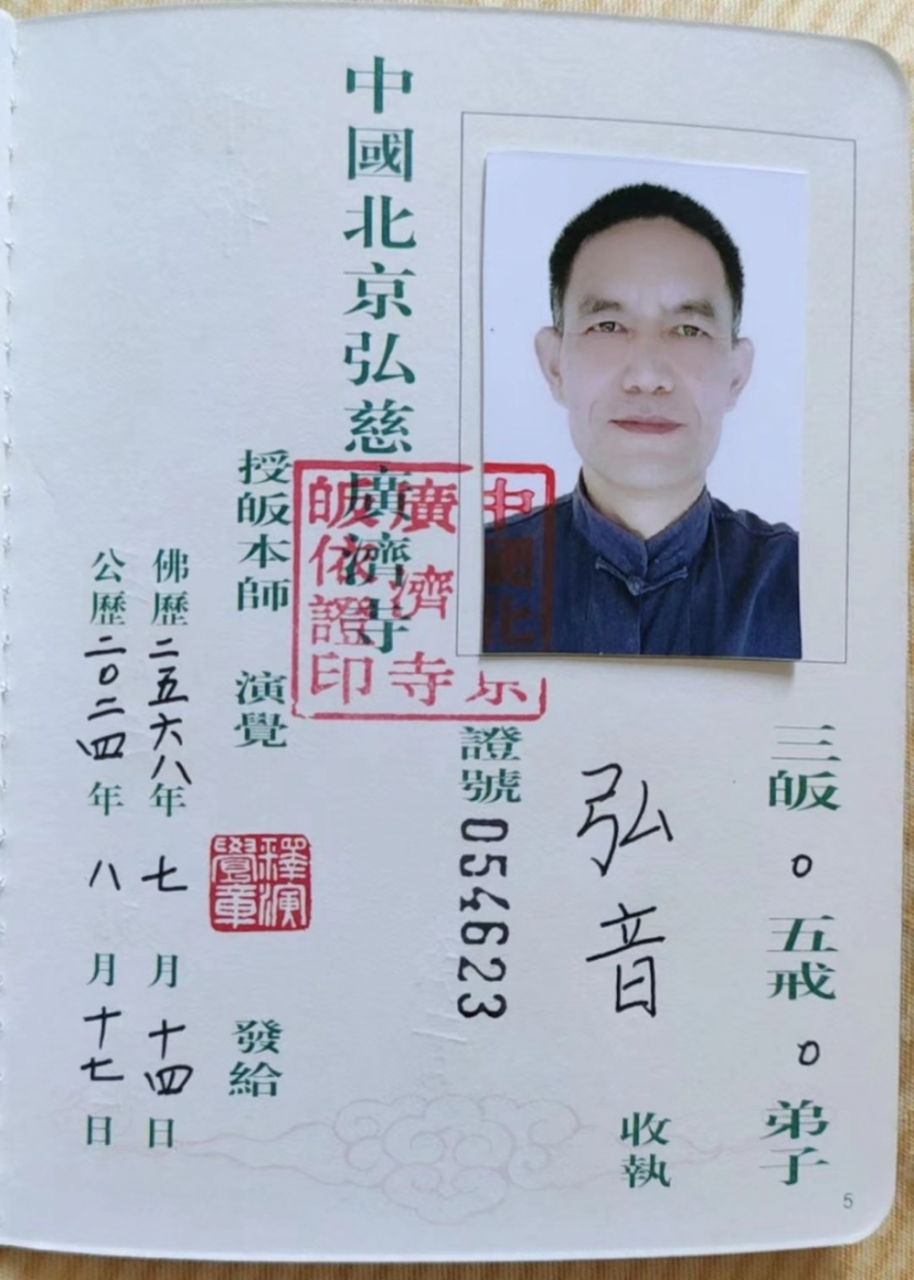 三皈 。 五戒 。 弟子
弘音 收執
證號 054623
中國北京弘慈廣濟寺
授皈本師 演覺 發給
佛歷二五六八年 七 月 十四日
公歷二〇二四年 八 月 十七日
中國北京
廣濟寺
皈依證印
釋演
覺章
5